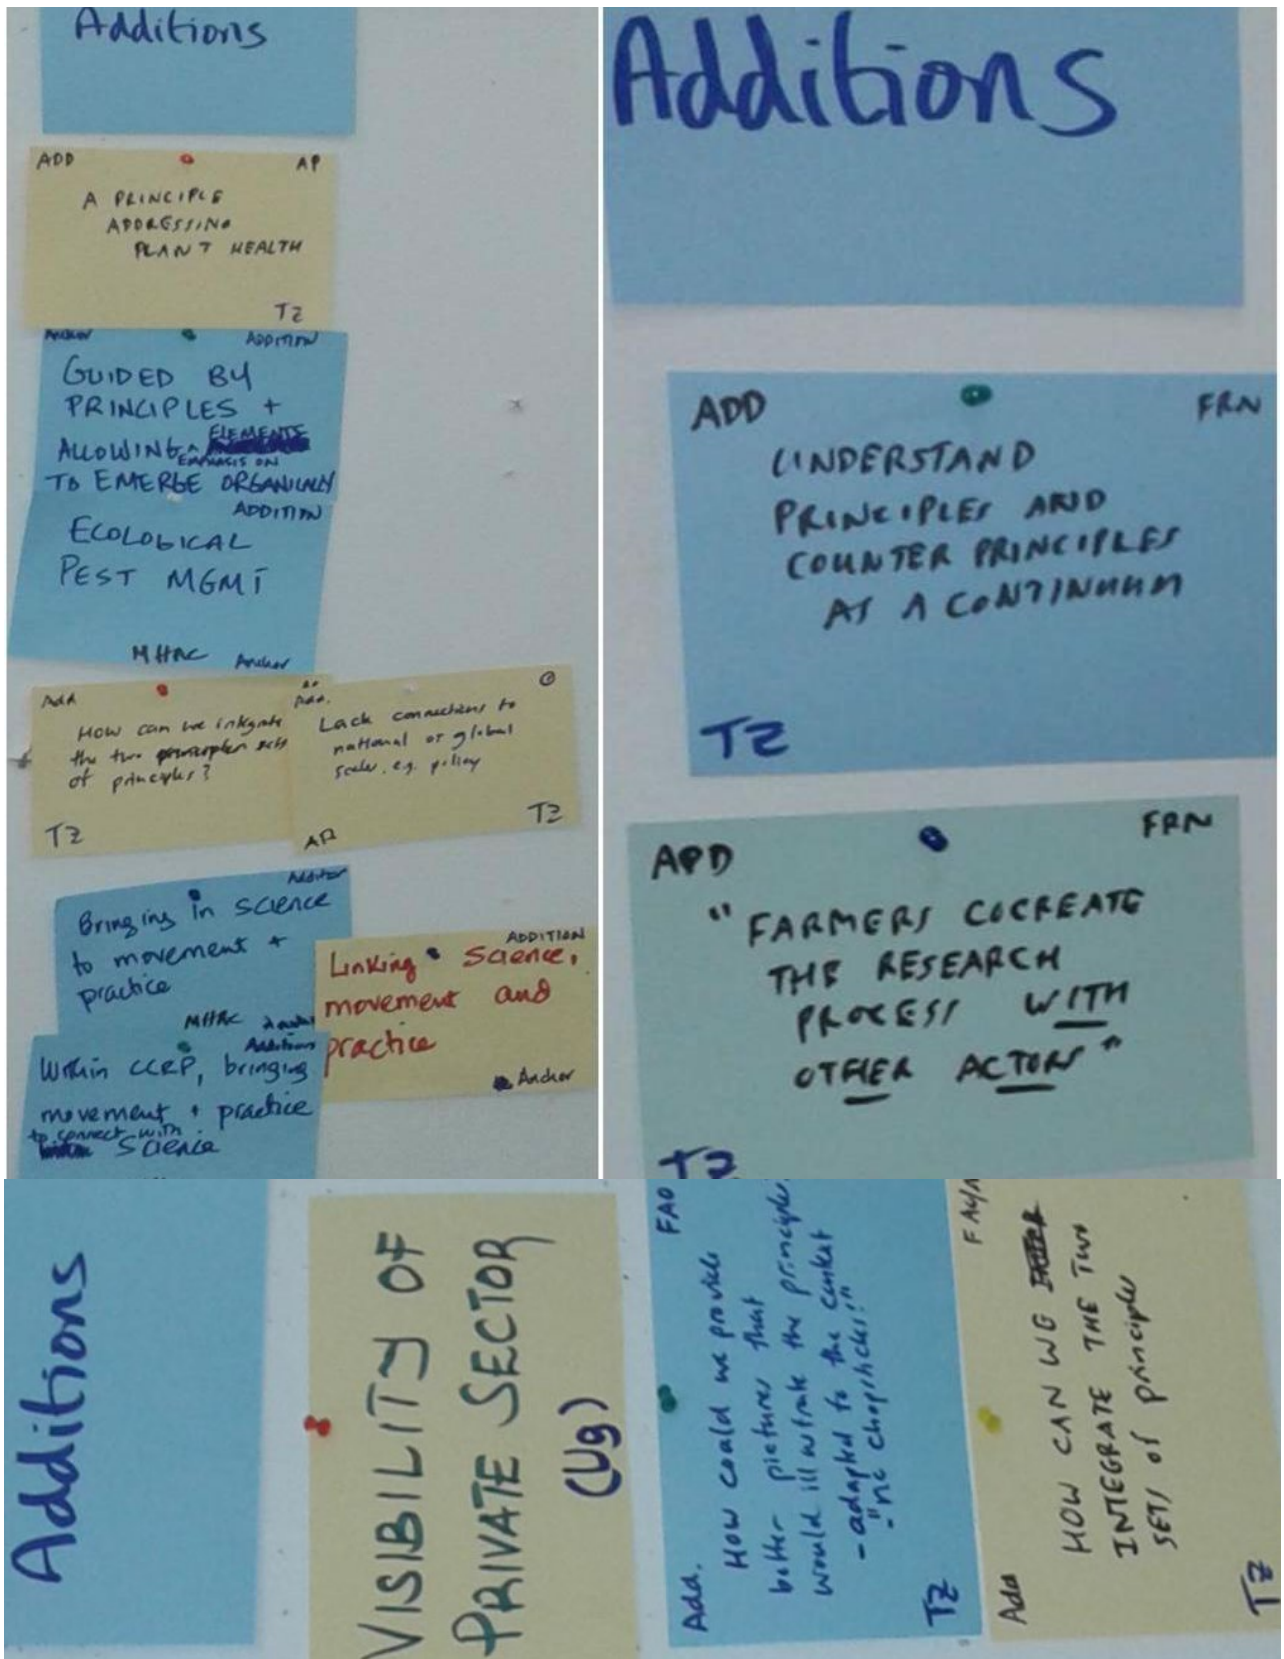 Additions
ADD AP
A PRINCIPLE
ADDRESSING
PLANT HEALTH
TZ
Anchor ADDITION
GUIDED BY
PRINCIPLES +
ALLOWING ELEMENTS
EMPHASIS ON
TO EMERGE ORGANICALLY
ADDITION
ECOLOGICAL
PEST MGMT
MHRC Anchor
Add
How can we integrate
the two sets
of principles?
TZ
Add.
Lack connections to
national or global
scales, e.g. policy
TZ
AP
Addition
Bringing in science
to movement +
practice
MHRC
ADDITION
Linking science,
movement and
practice
Anchor
Addition
Within CCRP, bringing
movement + practice
to connect with
science
Additions
ADD FRN
UNDERSTAND
PRINCIPLES AND
COUNTER PRINCIPLES
AS A CONTINUUM
TZ
ADD FRN
"FARMERS COCREATE
THE RESEARCH
PROCESS WITH
OTHER ACTORS"
TZ
Additions
VISIBILITY OF
PRIVATE SECTOR
(Ug)
Add. FAO
How could we provide
better pictures that
would illustrate the principles
- adapted to the context
- "no chopsticks!"
TZ
Add
HOW CAN WE
INTEGRATE THE TWO
SETS of principles
TZ